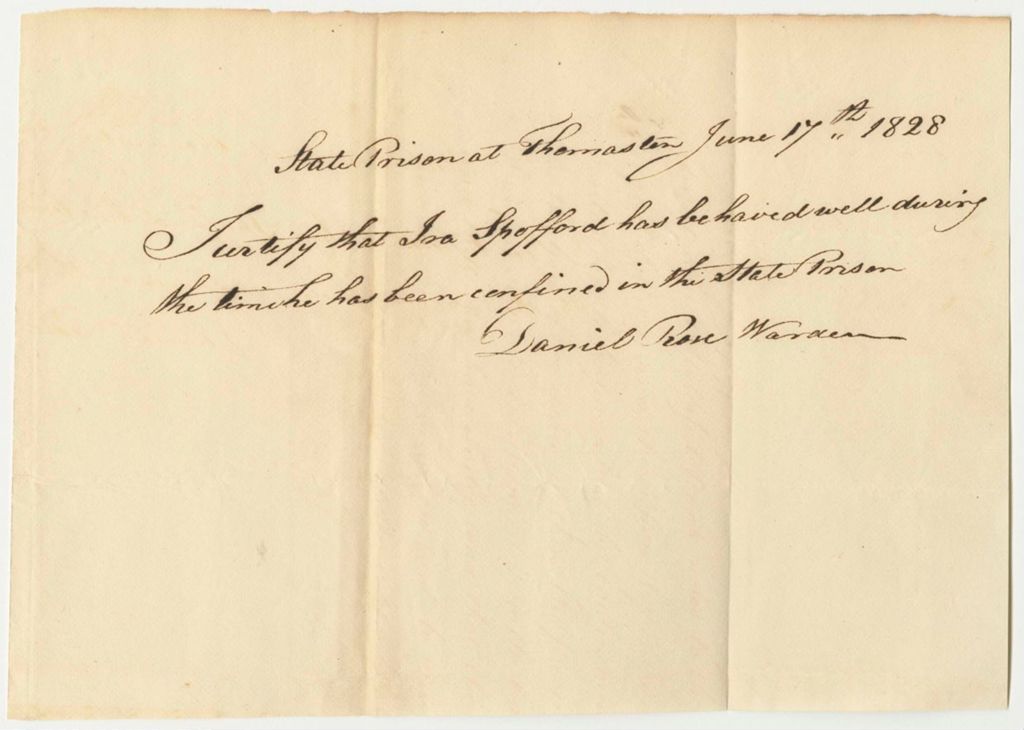 State Prison at Thomaston June 17th 1828
I certify that Ira Spofford has behaived well during
the time he has been confined in the State Prison
Daniel Rose Warden